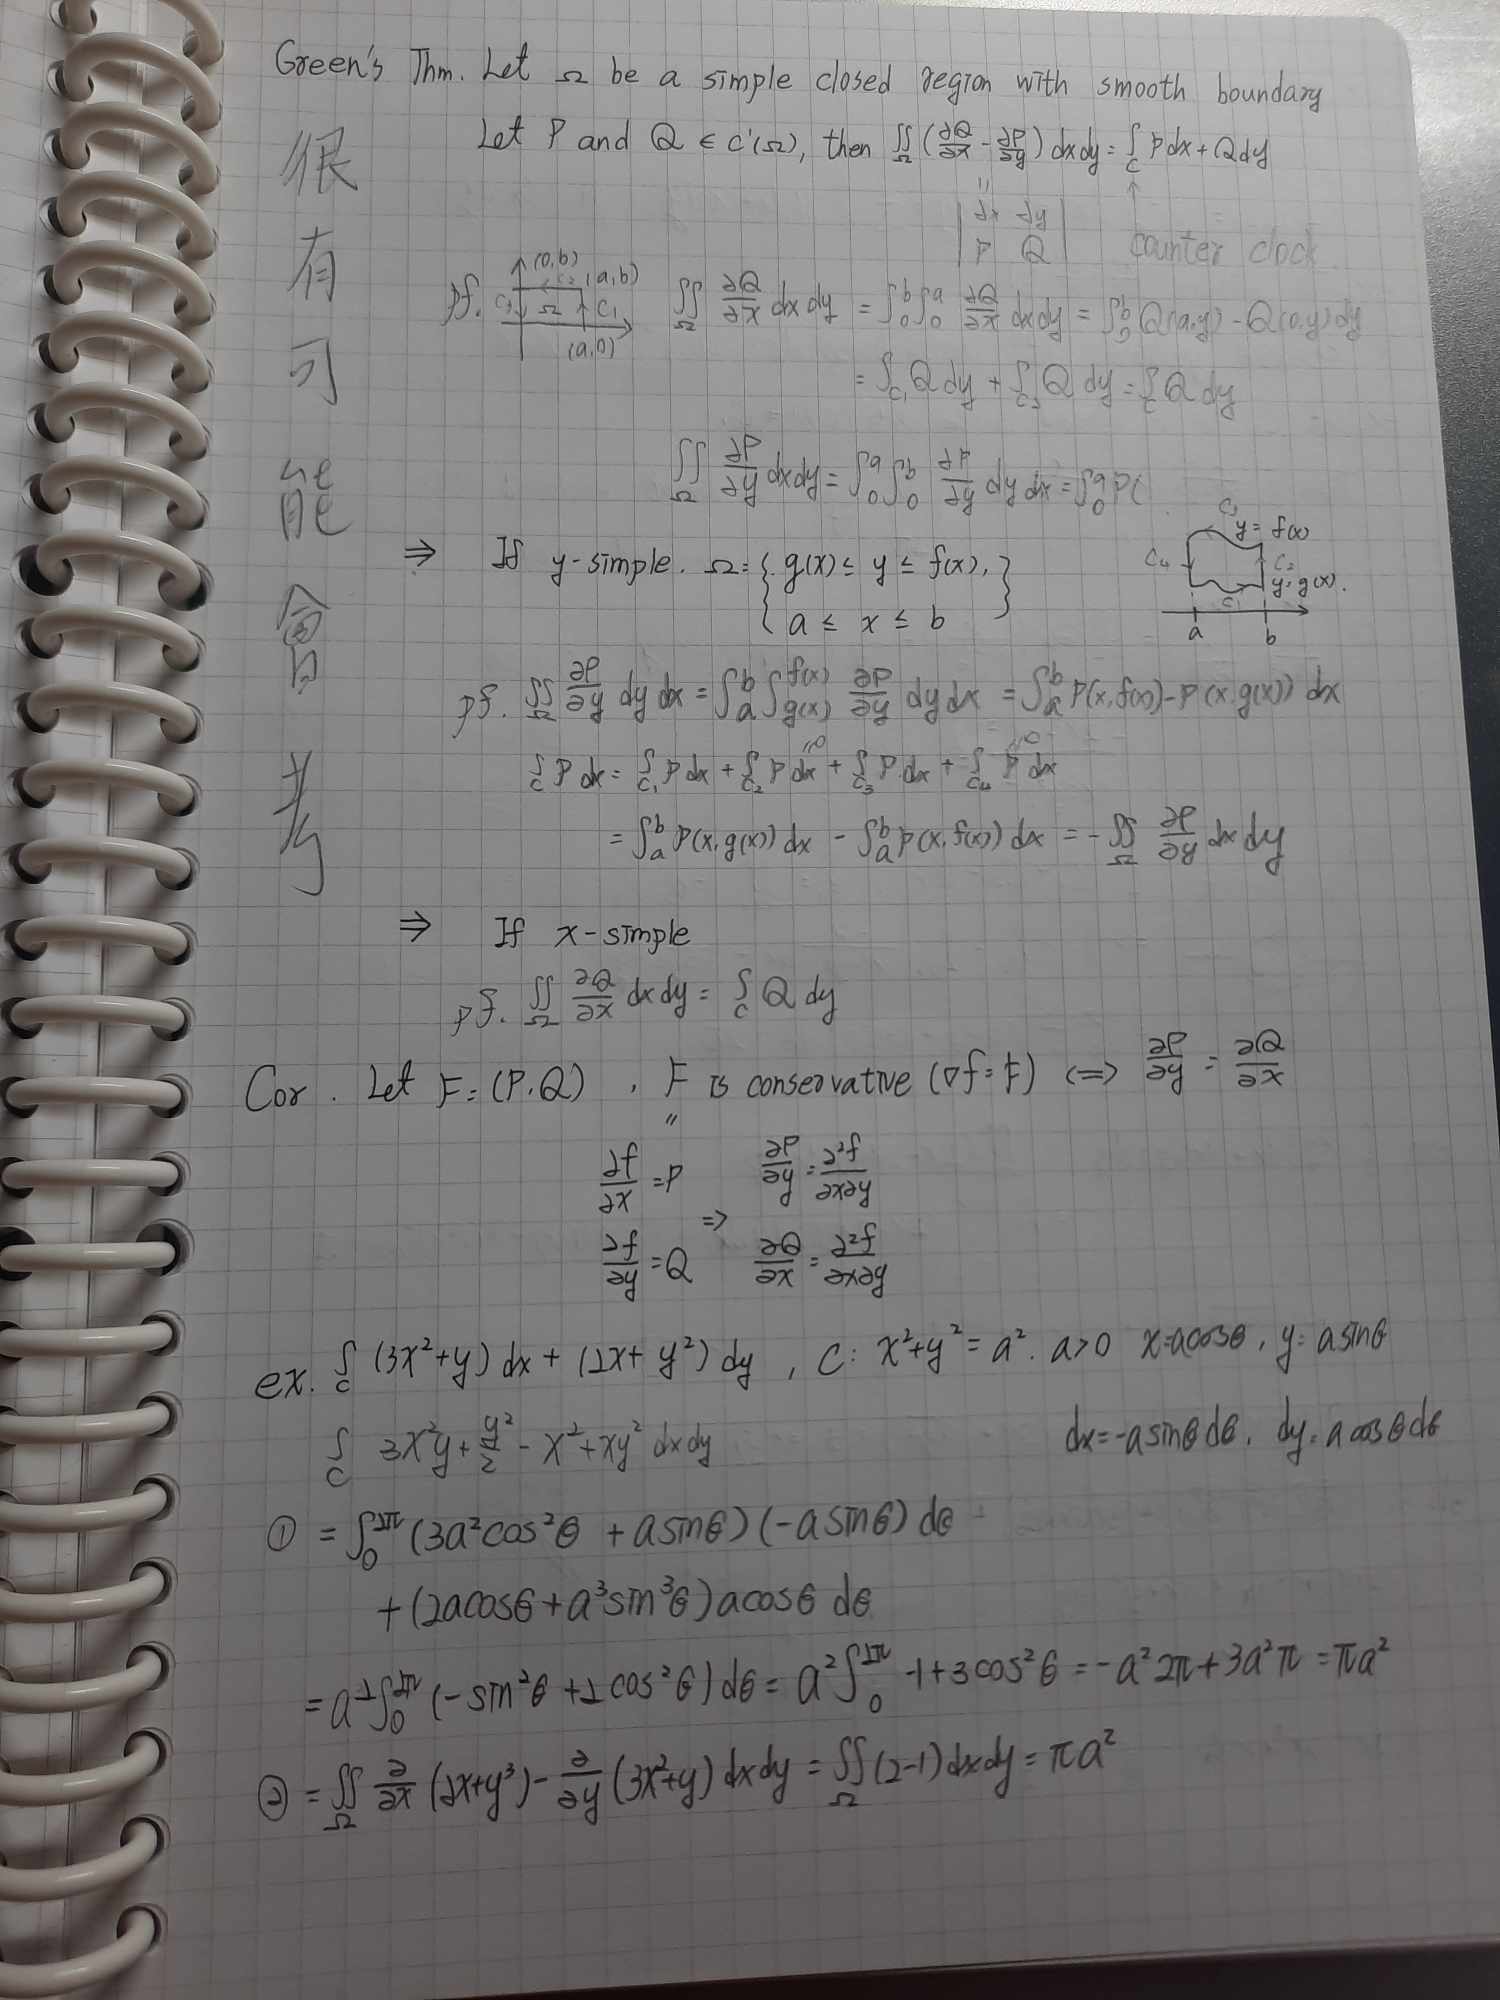 Green's Thm. Let Ω be a simple closed region with smooth boundary
Let P and Q ∈ C'(Ω), then ∬_Ω (∂Q/∂x - ∂P/∂y) dxdy = ∫_C Pdx + Qdy
"
| ∂x ∂y |
| P Q |
↑
counter clock
很有可能會考
pf.
(0,b)
C₂ (a,b)
C₃ Ω C₁
(a,0)
∬_Ω ∂Q/∂x dxdy = ∫_0^b ∫_0^a ∂Q/∂x dxdy = ∫_0^b Q(a,y) - Q(0,y) dy
= ∫_C₁ Q dy + ∫_C₃ Q dy = ∫_C Q dy
∬_Ω ∂P/∂y dxdy = ∫_0^a ∫_0^b ∂P/∂y dy dx = ∫_0^a P(
⇒ If y-simple. Ω = { g(x) ≤ y ≤ f(x),
a ≤ x ≤ b }
C₃
y = f(x)
C₄ C₂
y = g(x).
C₁
a b
pf. ∬_Ω ∂P/∂y dy dx = ∫_a^b ∫_g(x)^f(x) ∂P/∂y dy dx = ∫_a^b P(x,f(x)) - P(x,g(x)) dx
"0 "0
∫_C P dx = ∫_C₁ P dx + ∫_C₂ P dx + ∫_C₃ P dx + ∫_C₄ P dx
= ∫_a^b P(x,g(x)) dx - ∫_a^b P(x,f(x)) dx = -∬_Ω ∂P/∂y dx dy
⇒ If x-simple
pf. ∬_Ω ∂Q/∂x dxdy = ∫_C Q dy
Cor. Let F = (P,Q), F is conservative (∇f = F) <=> ∂P/∂y = ∂Q/∂x
"
∂f/∂x = P ∂P/∂y = ∂²f/∂x∂y
=>
∂f/∂y = Q ∂Q/∂x = ∂²f/∂x∂y
ex. ∫_C (3x²+y) dx + (2x+y²) dy, C: x²+y² = a². a>0 x=acosθ, y=asinθ
∫_C 3x²y + y²/2 - x² + xy² dxdy
dx = -asinθdθ, dy = acosθdθ
① = ∫_0^2π (3a²cos²θ + asinθ)(-asinθ) dθ
+ (2acosθ + a³sin³θ) acosθ dθ
= a² ∫_0^2π (-sin²θ + 2cos²θ) dθ = a² ∫_0^2π -1 + 3cos²θ = -a²2π + 3a²π = πa²
② = ∬_Ω ∂/∂x (2x+y³) - ∂/∂y (3x²+y) dxdy = ∬_Ω (2-1) dxdy = πa²